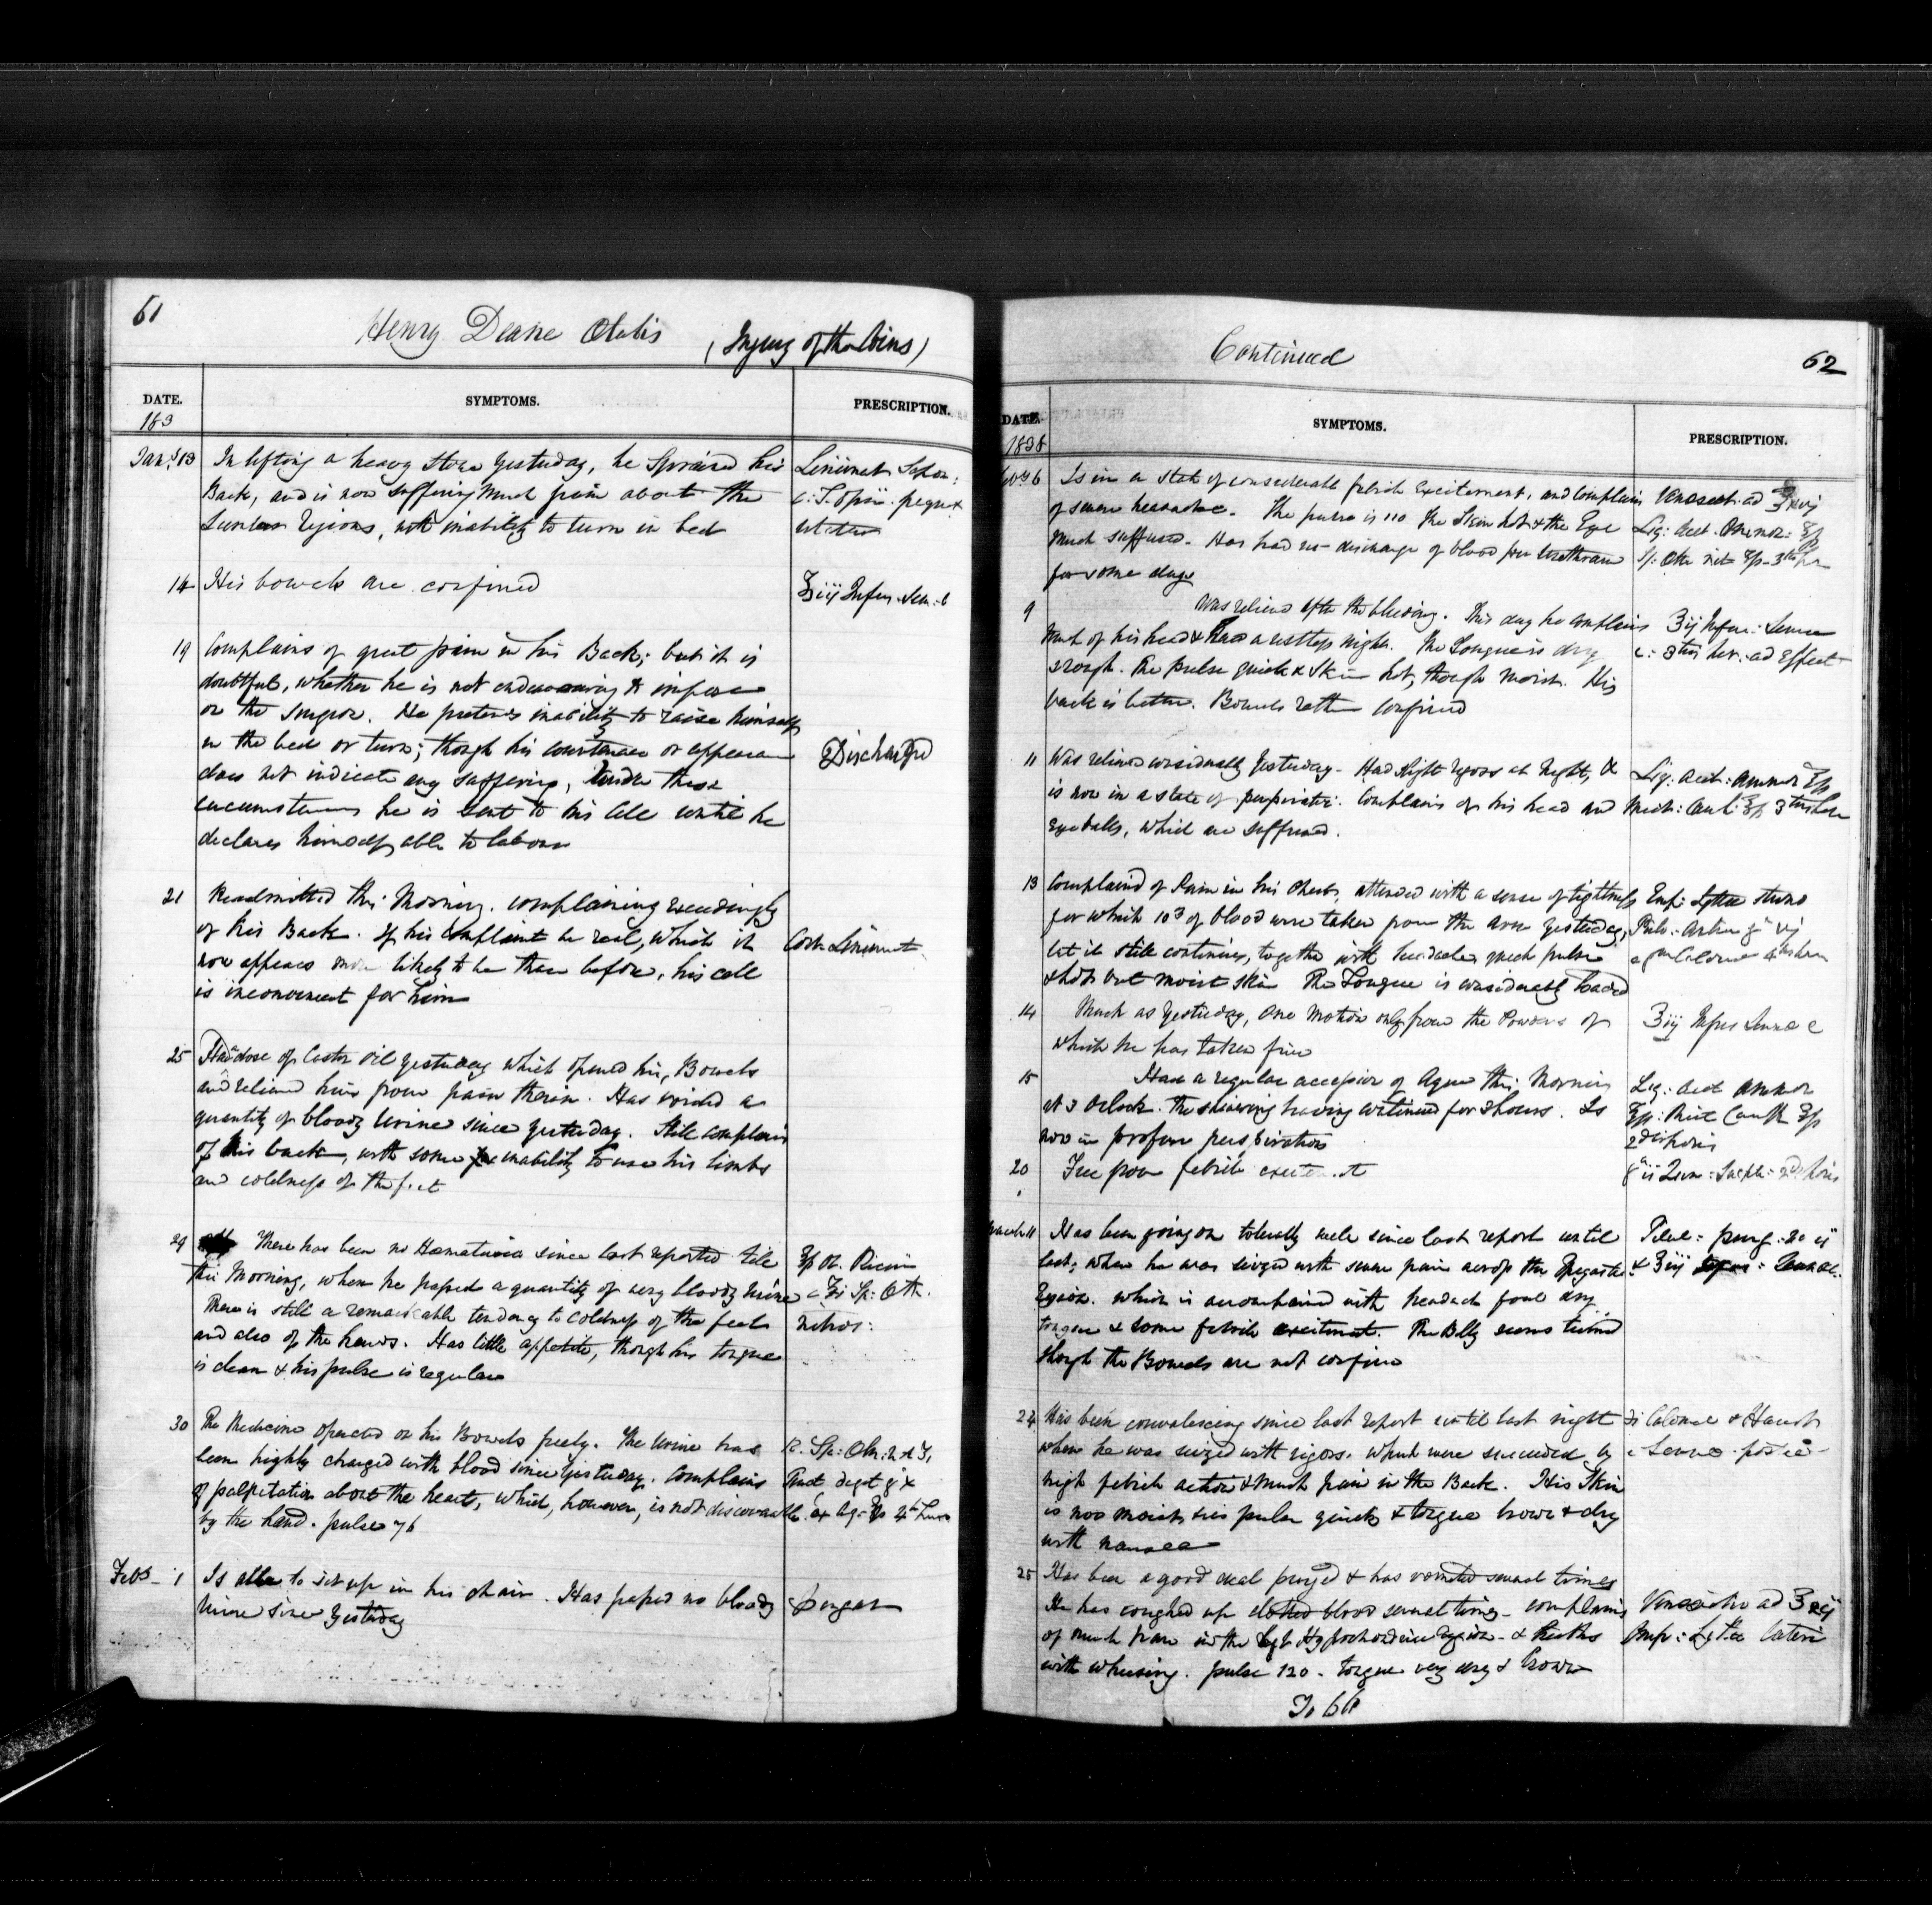 61
Henry Deane (Injury of the Loins)
DATE. SYMPTOMS. PRESCRIPTION.
183
Jany. 13 In lifting a heavy stone yesterday, he sprained his
Back, and is now suffering much pain about the
Lumbar regions, with inability to turn in bed
Liniment Sapon:
c: T. Opii
14 His bowels are confined
℥iij Infus. Sen: c
19 Complains of great pain in his Back; but it is
doubtful, whether he is not endeavouring to impose
on the Surgeon. He pretends inability to raise himself
in the bed or turn; though his countenance or appearance
does not indicate any suffering, Under these
circumstances he is sent to his Cell until he
declares himself able to labour
Discharged
21 Readmitted this Morning. complaining exceedingly
of his Back. If his Complaint be real, which it
now appears more likely to be than before, his cell
is inconvenient for him
Cont. Liniment
25 Had a dose of Castor Oil yesterday which opened his Bowels
and relieved him from pain therein. Has voided a
quantity of bloody Urine since yesterday. Still complains
of his back, with some inability to use his limbs
and coldness of the feet
29 There has been no Hæmaturia since last reported till
this Morning, when he passed a quantity of very bloody Urine
There is still a remarkable tendency to coldness of the feet
and also of the hands. Has little appetite, though his tongue
is clean & his pulse is regular
Ol. Ricini
c ʒi Sp: Æth.
nitros:
30 The Medicine operated on his Bowels freely. The Urine has
been highly charged with blood since yesterday. Complains
of palpitation about the heart, which, however, is not discoverable
by the hand. pulse 76
Tinct digit
Feby. 1 Is able to sit up in his chair. Has passed no bloody
Urine since yesterday
Continued
62
DATE. SYMPTOMS. PRESCRIPTION.
1838
6 Is in a state of considerable febrile Excitement, and complains
of severe headache. The pulse is 110 the Skin hot & the Eye
much suffused. Has had no discharge of blood per Urethram
for some days
Venesect: ad ℥xvj
Liq: Acet. Ammon:
Sp: Æth nit
9 Was relieved after the bleeding. This day he complains
much of his head & had a restless night. The Tongue is dry
& rough. The pulse quick & Skin hot, though moist. His
back is better. Bowels rather confined
℥ij Infus: Sennæ
ad Effect
11 Was relieved considerably yesterday. Had slight rigors at Night, &
is now in a state of perspiration. Complains of his head and
Eyeballs, which are suffused.
Liq: Acet: Ammon
13 Complained of Pain in his Chest, attended with a sense of tightness
for which 10℥ of blood were taken from the arm yesterday,
but it still continues, together with headache, quick pulse
& hot but moist skin The Tongue is considerably loaded
Emp: Lyttæ
14 Much as yesterday, One Motion only from the Powders of
which he has taken five
℥iij Infus Sennæ c
15 Had a regular accession of Ague this Morning
at 3 Oclock. The shivering having continued for 2 hours. Is
now in profuse perspiration
Liq: Acet Ammon
20 Free from febrile excitement
March 11 Has been going on tolerably well since last report until
last, when he was seized with severe pain across the Epigastric
Region. which is accompanied with headach foul dry
tongue & some febrile excitement. The Belly seems tumid
though the Bowels are not confined
Pilul: purg. No ij
24 Has been convalescing since last report until last night
when he was seized with rigors. which were succeeded by
high febrile action & much pain in the Back. His Skin
is now moist, his pulse quick & tongue brown & dry
with nausea
Calomel & Haust
Sennæ
25 Has been a good deal purged & has vomited several times
He has coughed up clotted blood several times. complains
of much pain in the Hypochondriac region & breaths
with wheezing. pulse 120. tongue very dry & brown
Emp: Lyttæ lateri
To 66